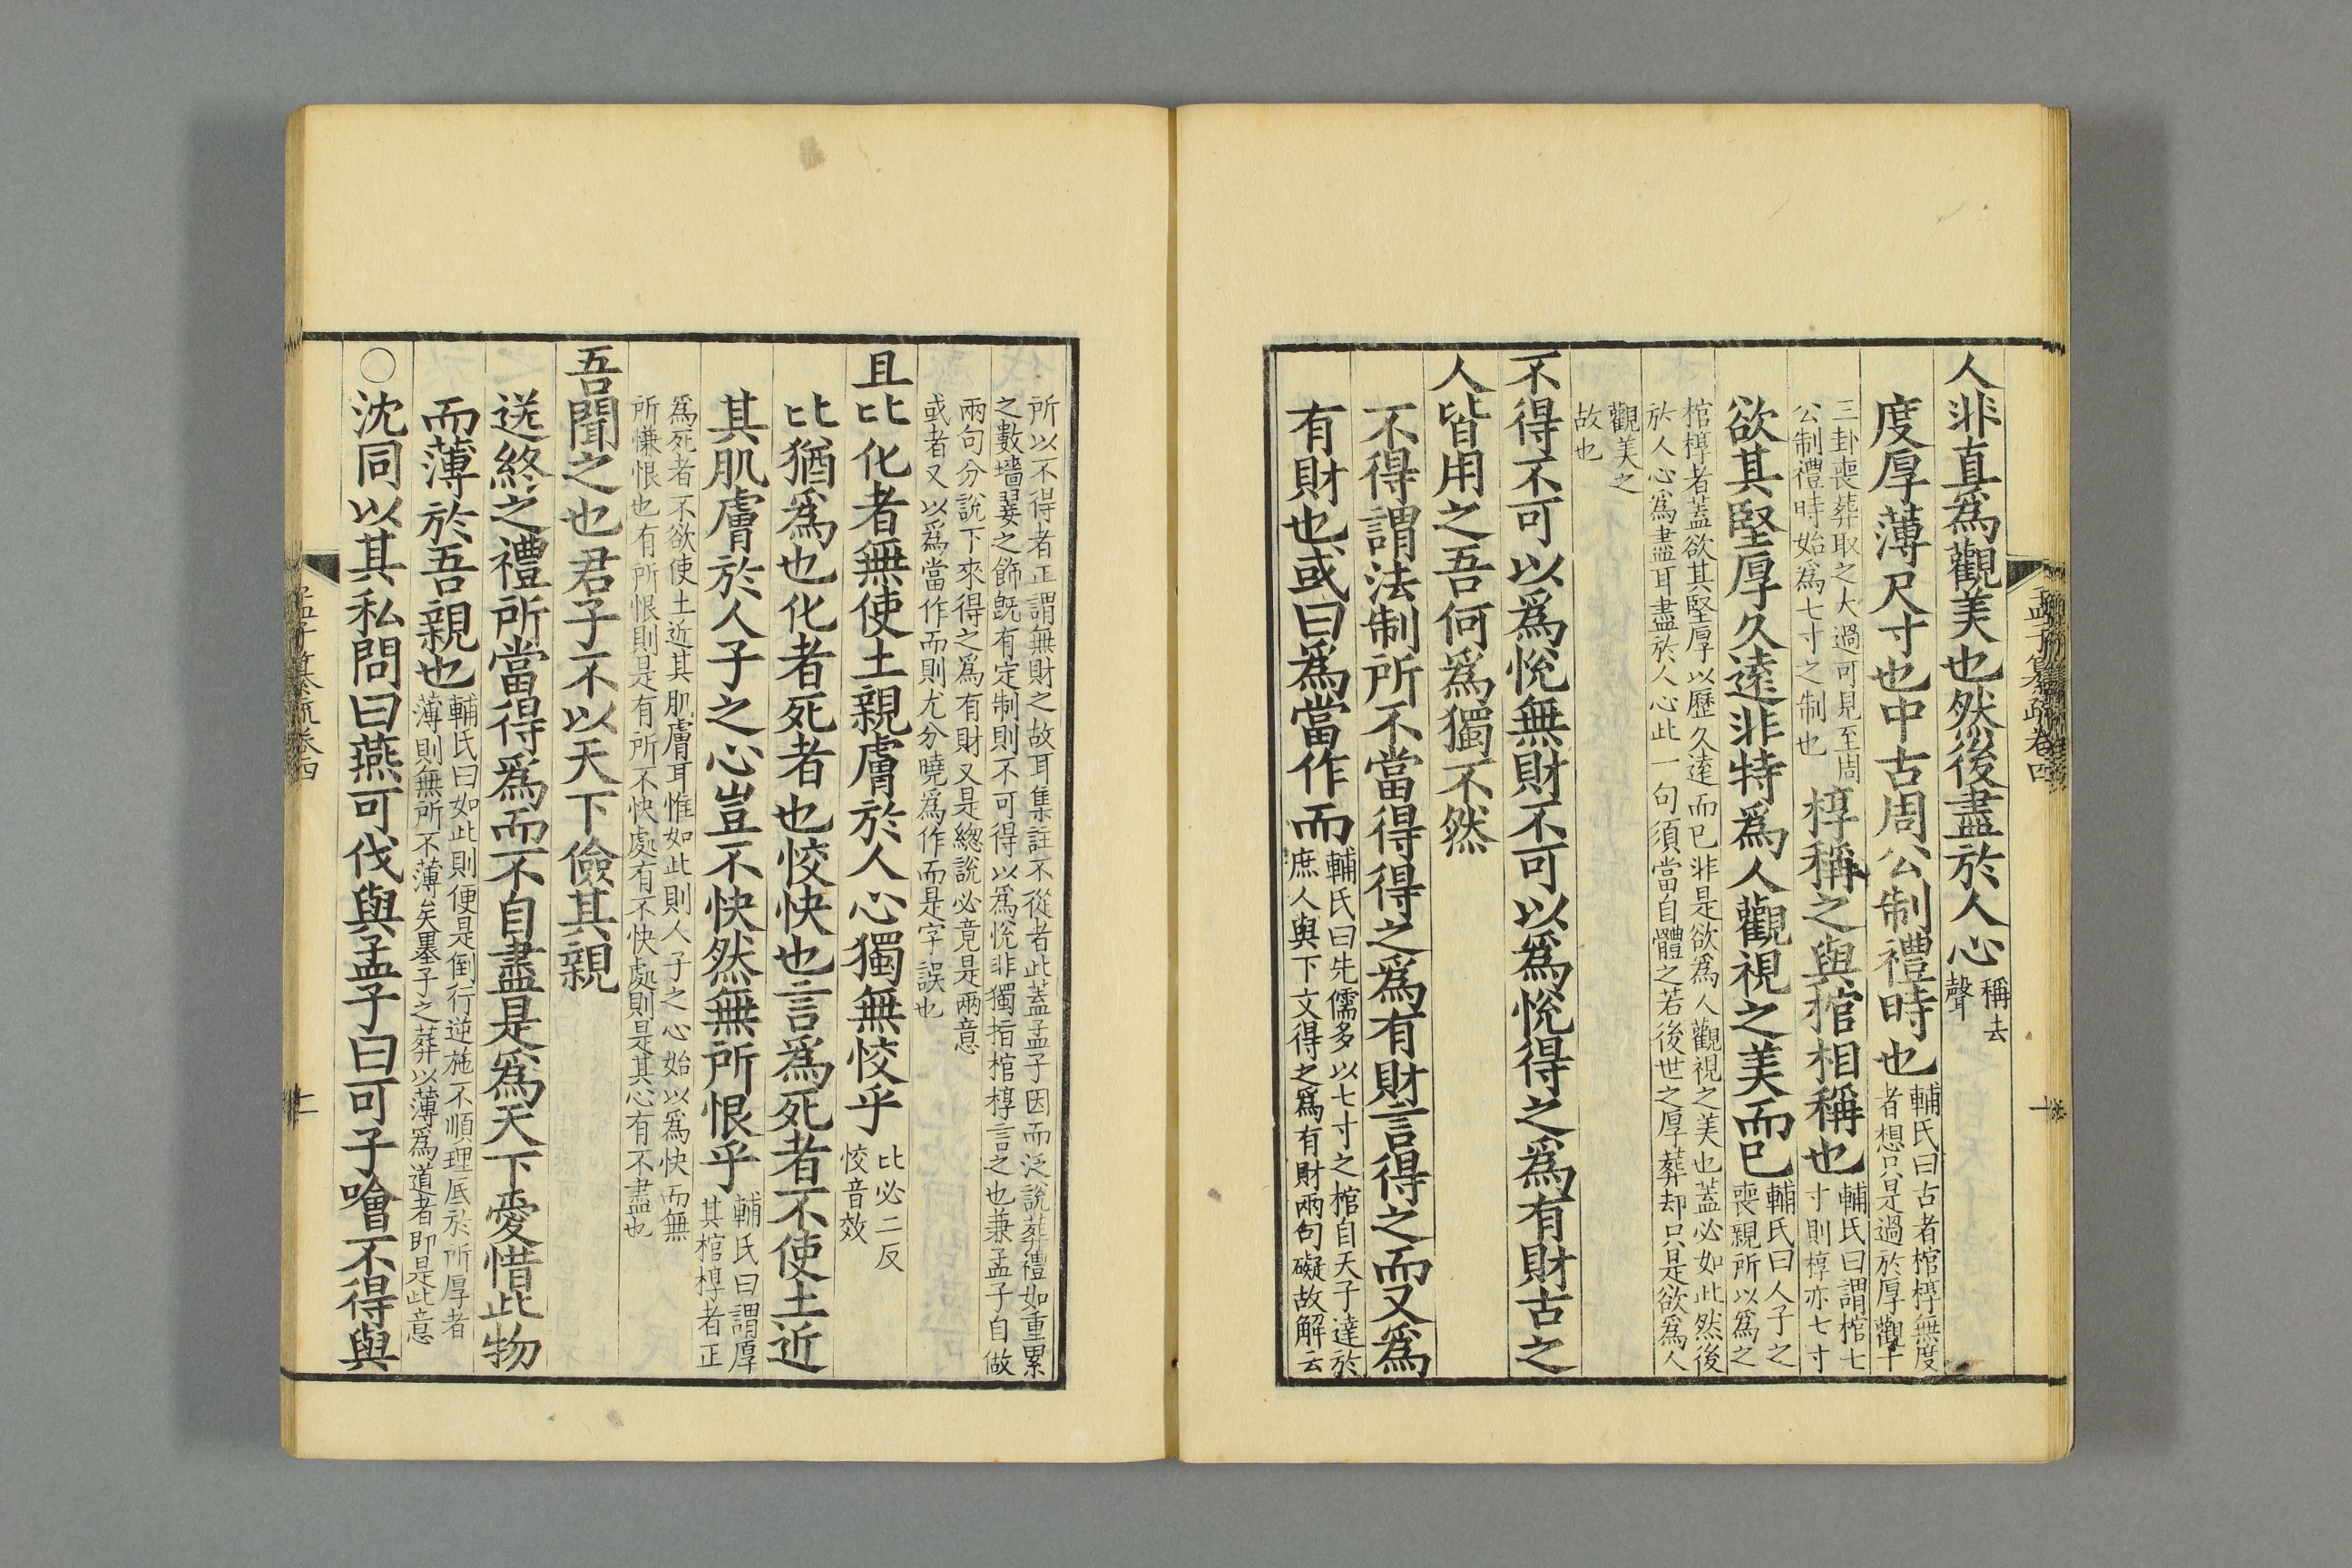 孟子纂疏卷四
人非直爲觀美也然後盡於人心稱去聲
度厚薄尺寸也中古周公制禮時也輔氏曰古者棺椁無度者想只是過於厚觀十
三卦喪葬取之大過可見至周公制禮時始爲七寸之制也椁稱之與棺相稱也輔氏曰謂棺七寸則椁亦七寸
欲其堅厚久遠非特爲人觀視之美而已輔氏曰人子之喪親所以爲之
棺椁者蓋欲其堅厚以歷久遠而已非是欲爲人觀視之美也蓋必如此然後
於人心爲盡耳盡於人心此一句須當自體之若後世之厚葬却只是欲爲人
觀美之
故也
不得不可以爲悅無財不可以爲悅得之爲有財古之
人皆用之吾何爲獨不然
不得謂法制所不當得得之爲有財言得之而又爲
有財也或曰爲當作而輔氏曰先儒多以七寸之棺自天子達於庶人與下文得之爲有財兩句礙故解云
所以不得者正謂無財之故耳集註不從者此蓋孟子因而泛說葬禮如重累
之數墻翣之飾旣有定制則不可得以爲悅非獨指棺椁言之也兼孟子自做
兩句分說下來得之爲有財又是緫說必竟是兩意
或者又以爲當作而則尤分曉爲作而是字誤也
且比化者無使土親膚於人心獨無恔乎比必二反恔音效
比猶爲也化者死者也恔快也言爲死者不使土近
其肌膚於人子之心豈不快然無所恨乎輔氏曰謂厚其棺椁者正
爲死者不欲使土近其肌膚耳惟如此則人子之心始以爲快而無
所慊恨也有所恨則是有所不快處有不快處則是其心有不盡也
吾聞之也君子不以天下儉其親
送終之禮所當得爲而不自盡是爲天下愛惜此物
而薄於吾親也輔氏曰如此則便是倒行逆施不順理底於所厚者薄則無所不薄矣墨子之葬以薄爲道者即是此意
○沈同以其私問曰燕可伐與孟子曰可子噲不得與
孟子纂疏卷四